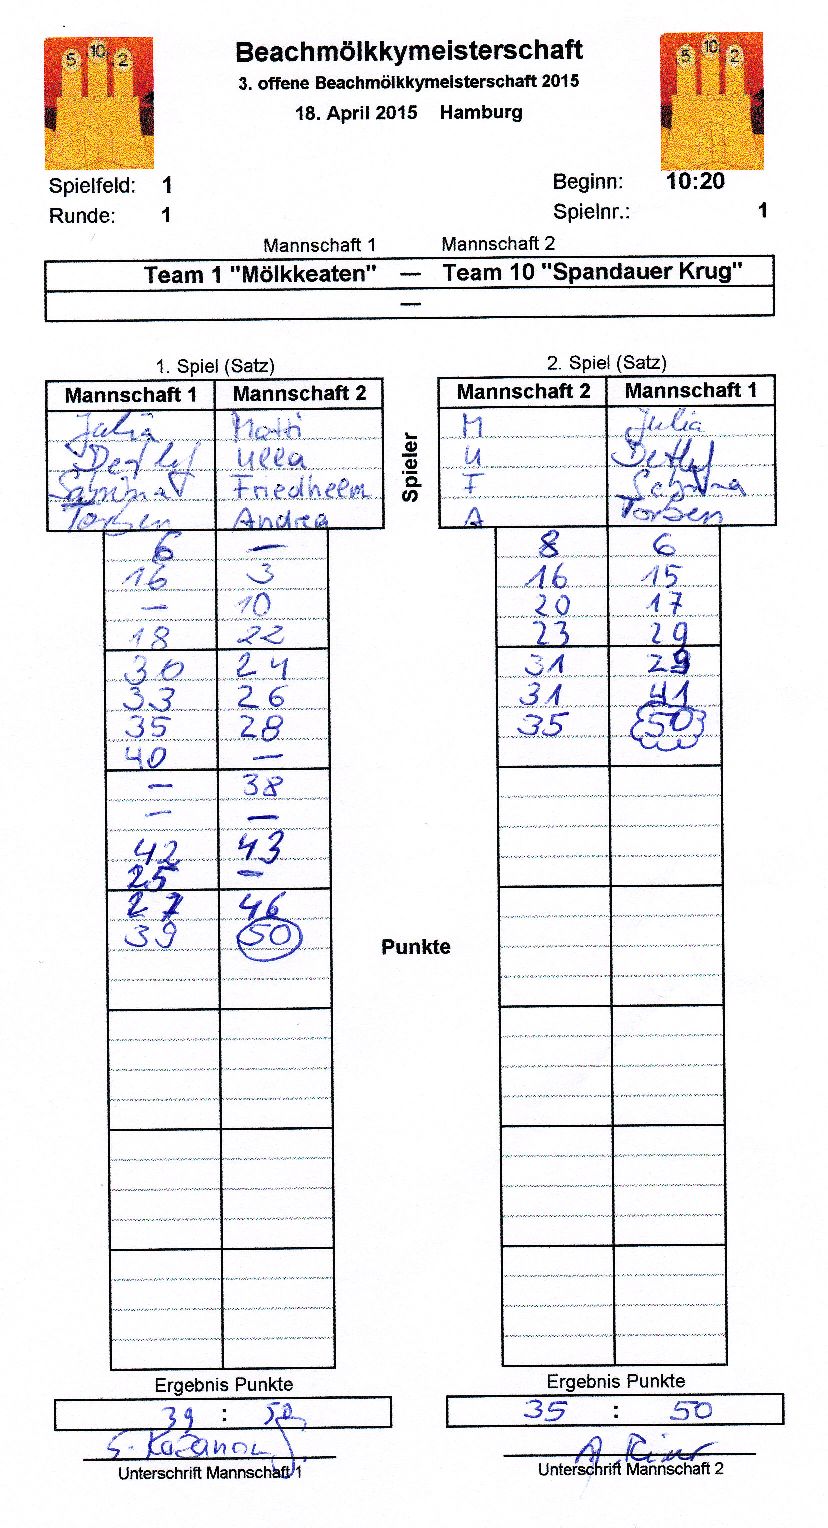 5 10 2 Beachmölkkymeisterschaft 5 10 2
3. offene Beachmölkkymeisterschaft 2015
18. April 2015 Hamburg
Spielfeld: 1 Beginn: 10:20
Runde: 1 Spielnr.: 1
Mannschaft 1 Mannschaft 2
Team 1 "Mölkkeaten" — Team 10 "Spandauer Krug"
—
1. Spiel (Satz) 2. Spiel (Satz)
Mannschaft 1 Mannschaft 2 Mannschaft 2 Mannschaft 1
Spieler
Julia Matti M Julia
Detlef Ulla U Detlef
Friedhelm F
Torben Andrea A Torben
6 — 8 6
16 3 16 15
— 10 20 17
18 22 23 29
30 24 31 29
33 26 31 41
35 28 35 50
40 —
— 38
— —
42 43
25 —
27 46
39 50
Punkte
Ergebnis Punkte Ergebnis Punkte
39 : 50 35 : 50
Unterschrift Mannschaft 1 Unterschrift Mannschaft 2